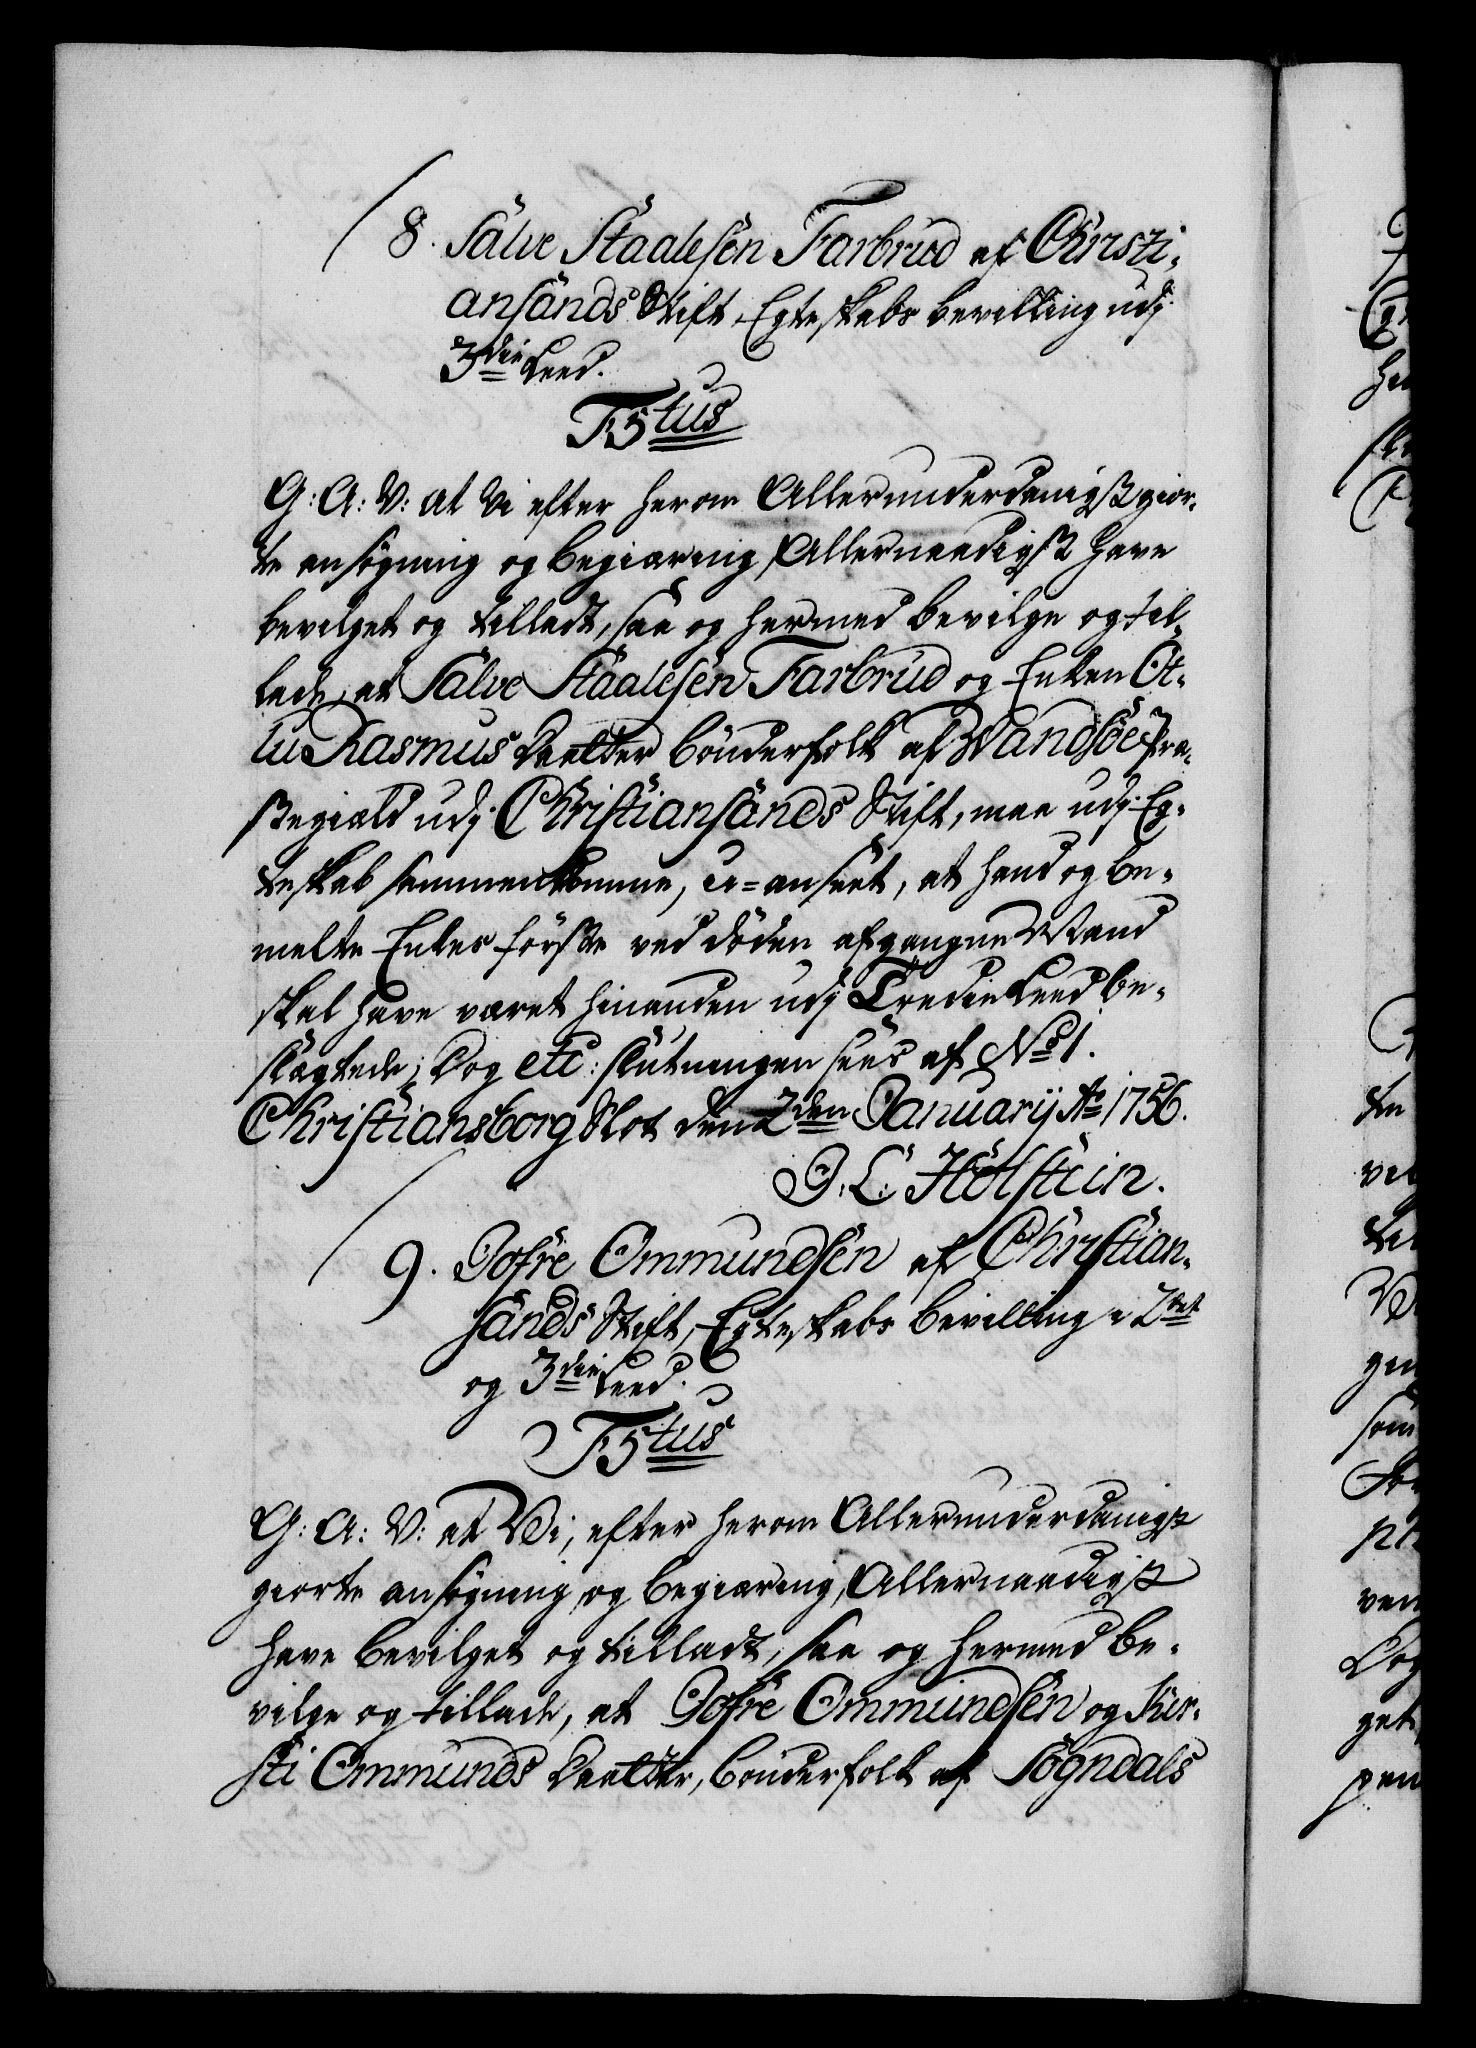 8. Salve Staalesen Farbrud af Christi-
ansands Stift, Egteskabs bevilling udj
3die Leed.
F5tus
G: A: V: at Vi efter herom Allerunderdanigst gior-
te ansøgning og begiæring, Allernaadigst have
bevilget og tilladt, saa og hermed bevilge og til-
lade, at Salve Staalesen Farbrud og Enken Ot-
lu Rasmus Daatter bønderfolk af Wandsøe Præ-
stegield udj Christiansands Stift, maa udj Eg-
teskab sammenkomme, u-anseet, at hand og be-
melte Enkes første ved døden afgangne Mand
skal have været hinanden udj Tredie Leed be-
slægtede; Dog etc: slutningen sees af No 1.
Christiansborg Slot den 2den Januarij Ao 1756.
J. L. Holstein.
9. Jofre Ommundsen af Christian-
sands Stift, Egteskabs bevilling i 2det
og 3die Leed.
F5tus
G: A: V: at Vi, efter herom Allerunderdanigst
giorte ansøgning og begiæring, Allernaadigst
have bevilget og tilladt, saa og hermed be-
vilge og tillade, at Jofre Ommundsen og Kier-
sti Ommunds Daatter, bønderfolk af Sogndals